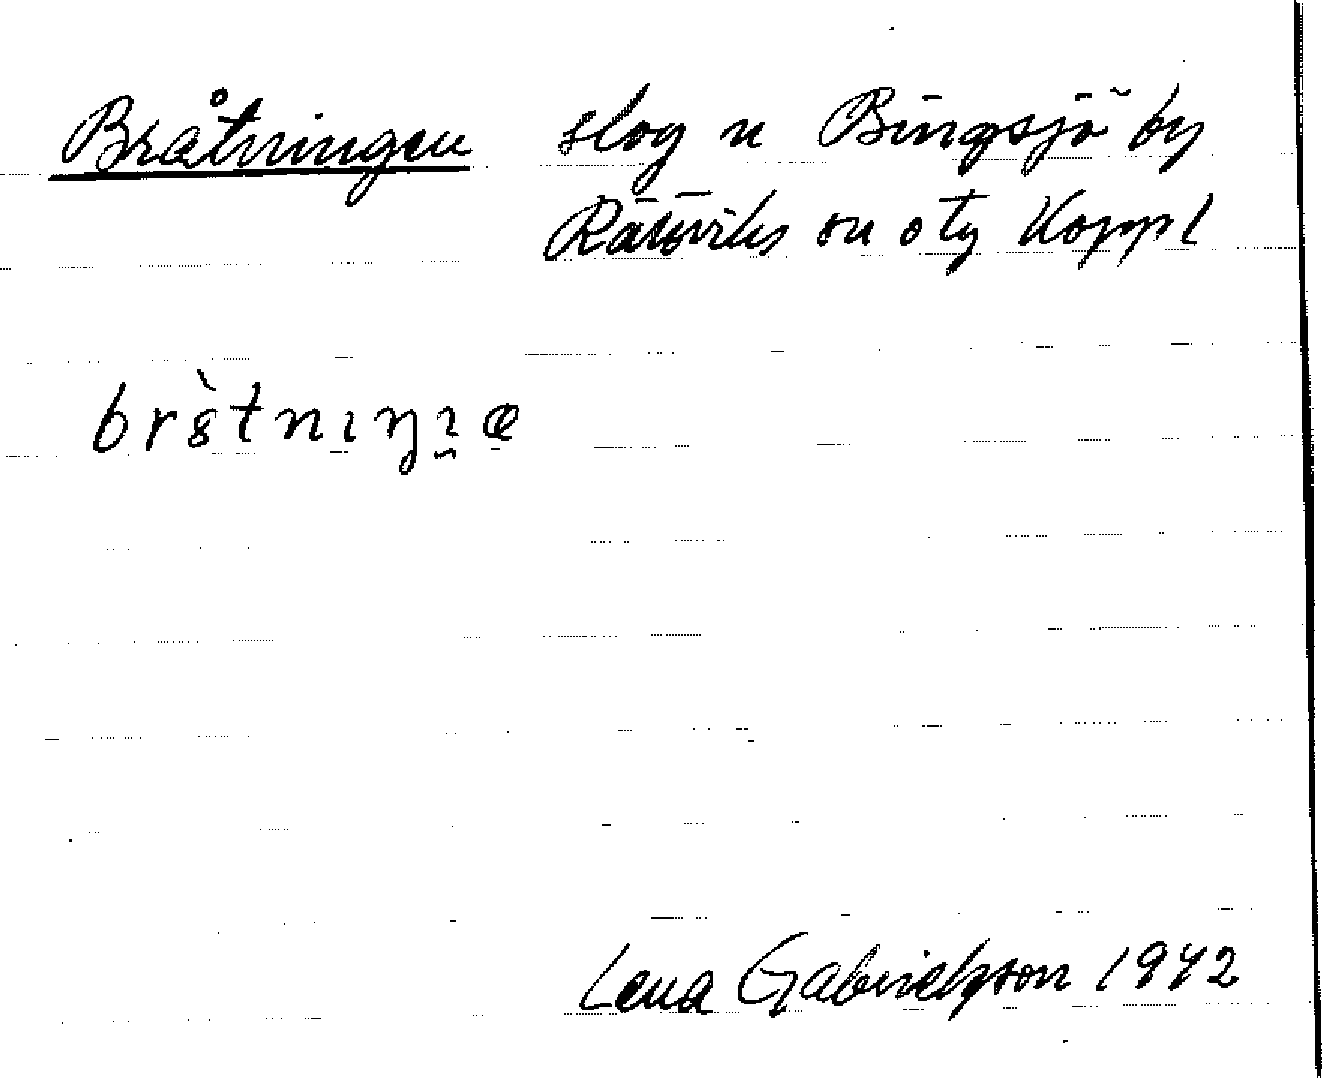 Bråtningen slog n Bingsjö by
Rättviks sn o tg Koppl
br8̀tnıŋı̯æ
Lena Gabrielsson 1942